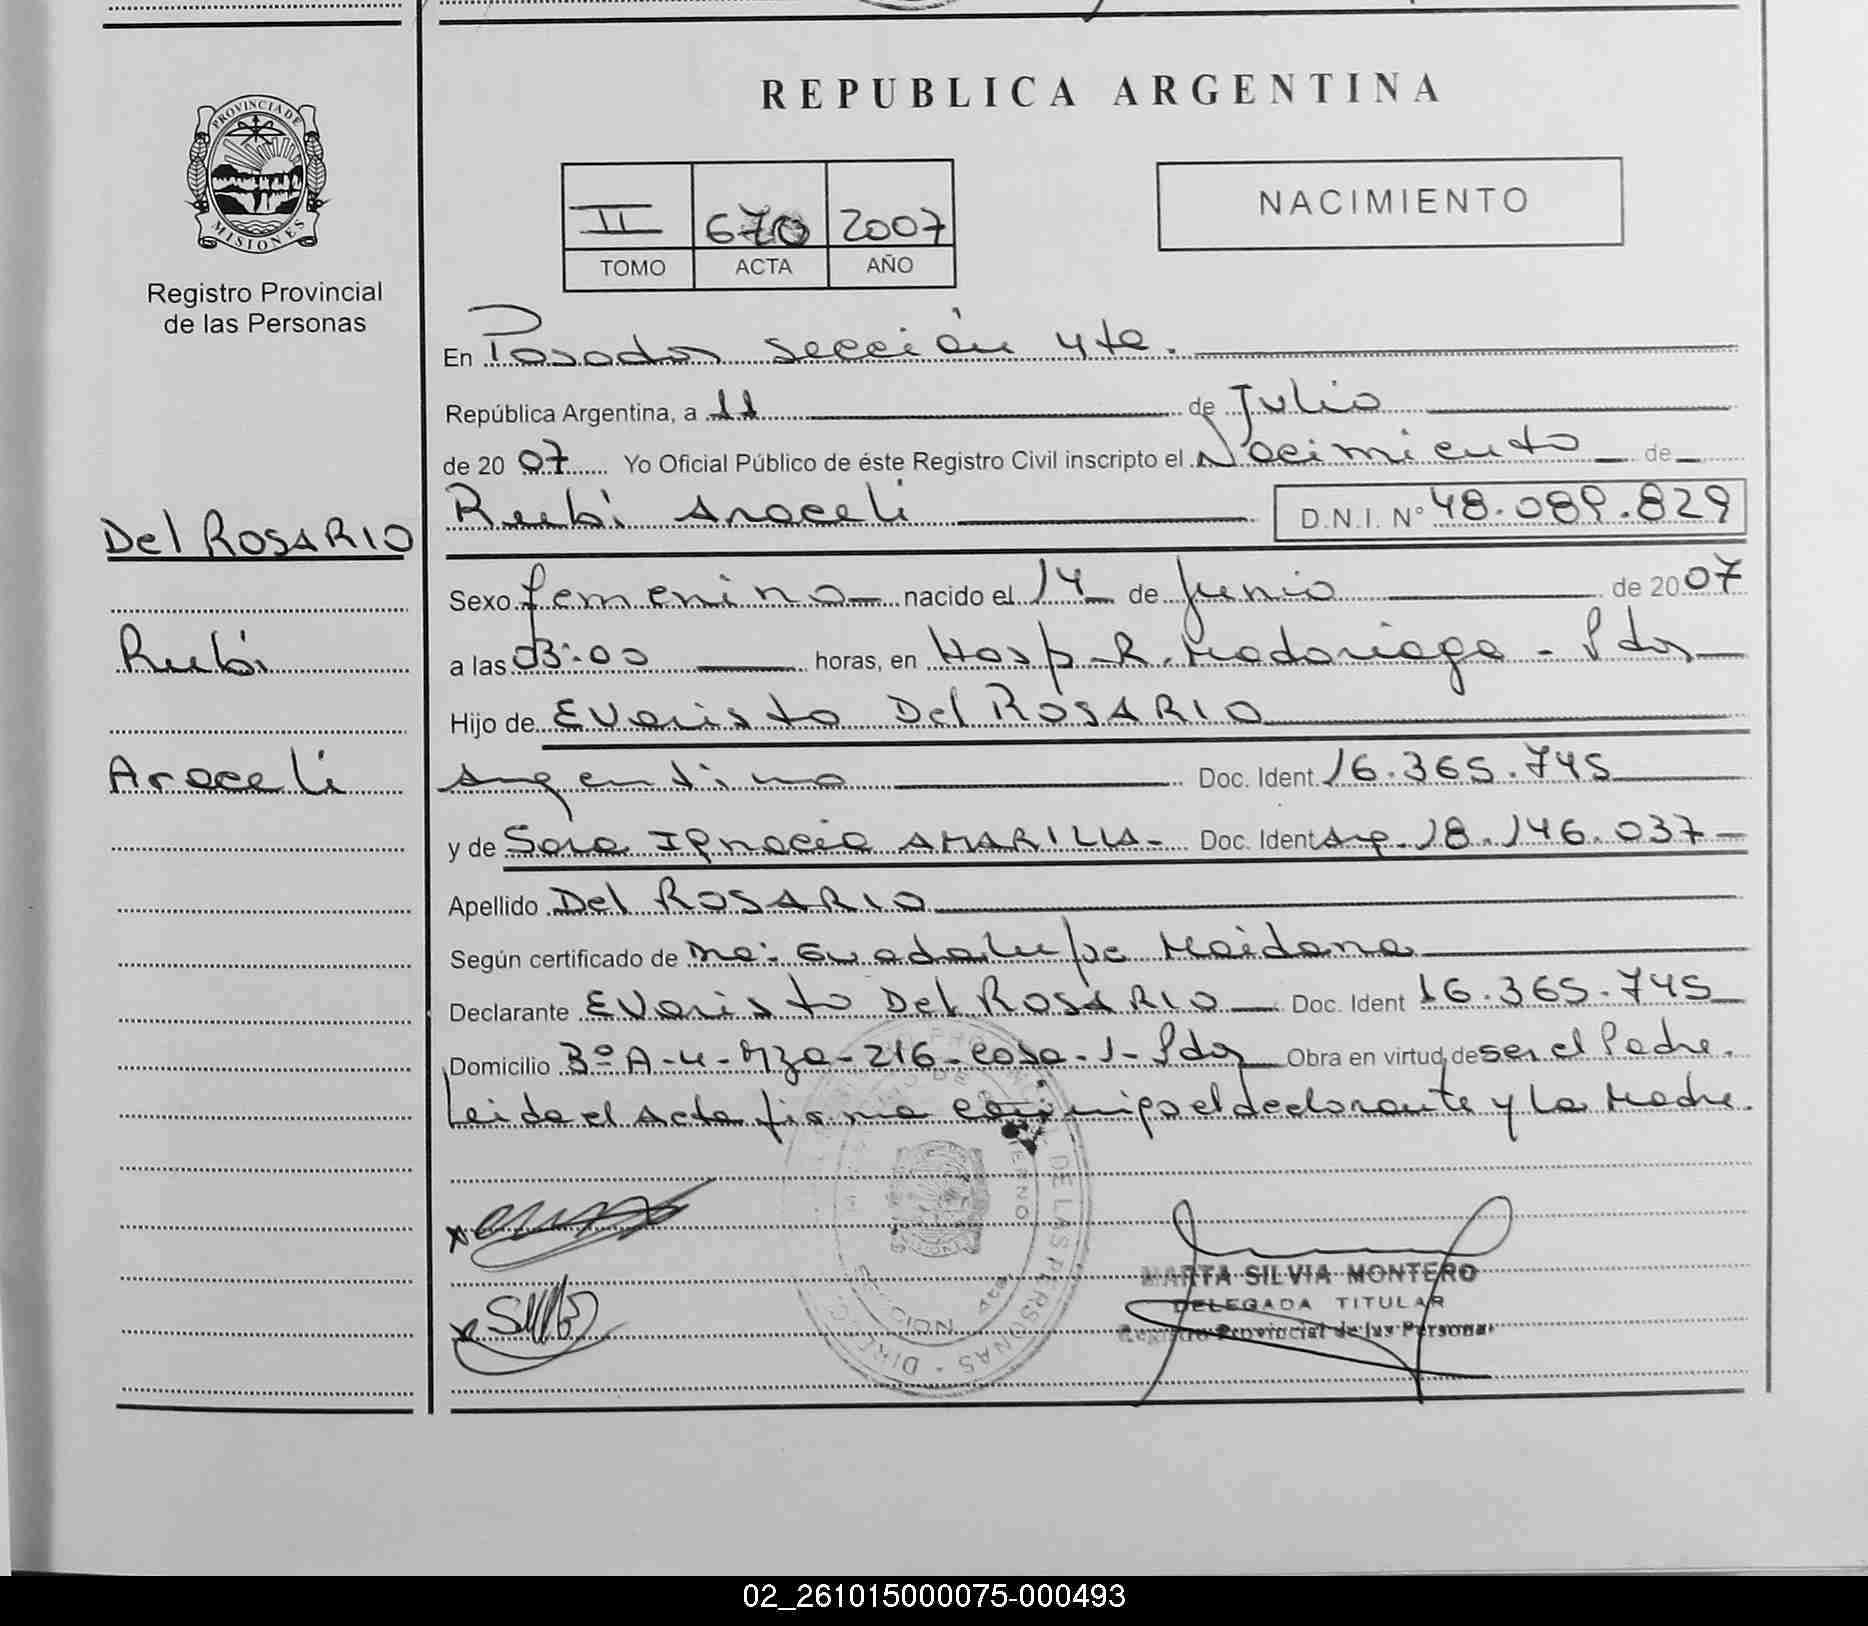 REPUBLICA ARGENTINA
PROVINCIA DE
MISIONES
Registro Provincial
de las Personas
II 670 2007
TOMO ACTA AÑO
NACIMIENTO
En Posadas Sección 4ta.
República Argentina, a 11 de Julio
de 20 07 Yo Oficial Público de éste Registro Civil inscripto el Nacimiento de
Rubi Araceli D.N.I. Nº 48.089.829
Del ROSARIO
Rubi
Araceli
Sexo femenino nacido el 14 de Junio de 20 07
a las 03:00 horas, en Hosp. R. Madariaga - Pdas
Hijo de Evaristo Del ROSARIO
Argentino Doc. Ident. 16.365.745
y de Sara Ignacia AMARILLA - Doc. Ident Arg. 18.146.037 -
Apellido Del ROSARIO
Según certificado de Ma: Guadalupe Maidana
Declarante Evaristo Del ROSARIO Doc. Ident 16.365.745
Domicilio 3º A-4-Mza-216-Casa-1-Pdas Obra en virtud de ser el Padre.
Leida el Acta firma conmigo el declarante y la Madre.
MARTA SILVIA MONTERO
DELEGADA TITULAR
Registro Provincial de las Personas
DE LAS PERSONAS
02_261015000075-000493